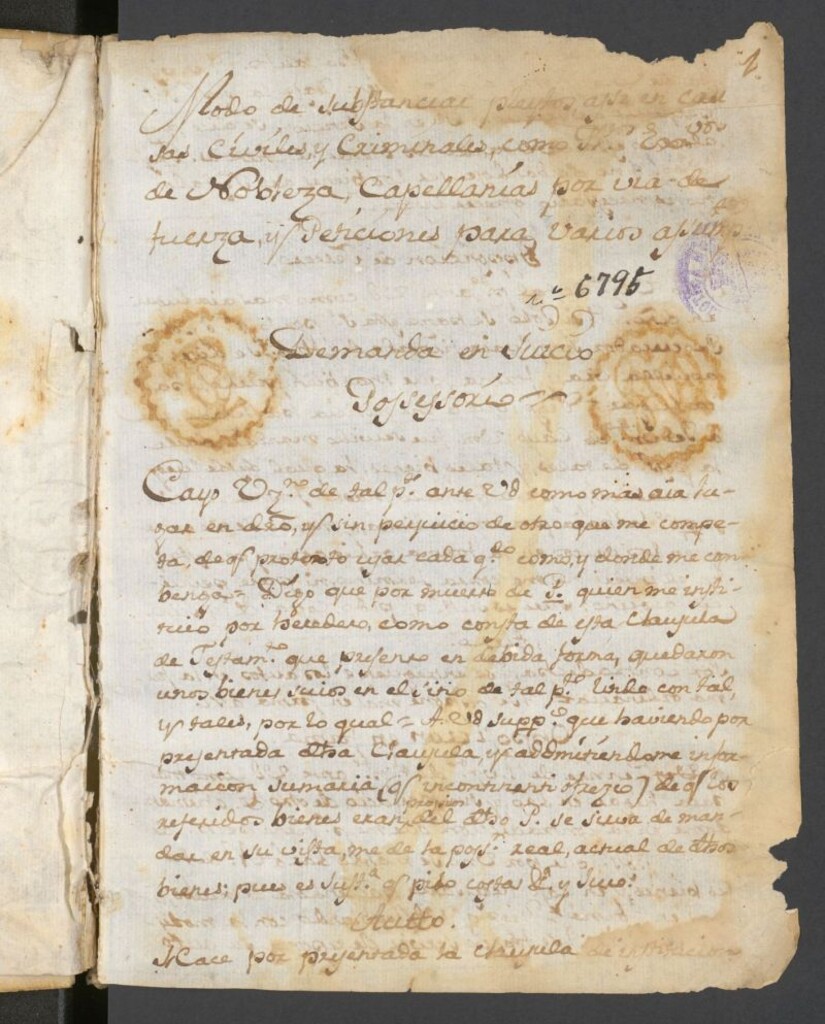 1.
Modo de substanciar pleytos assi en cau
sas Civiles, y Criminales, como
de Nobleza, Capellanías por via de
fuerza, y Peticiones para varios asump
nº 6795
Demanda en Juicio
Possessorio
Cayo Vzº de tal pte ante Vd como mas aia lu-
gar en dro, y sin perjuicio de otro que me compe-
ta, de q protexto usar cada qdo como, y donde me con
benga = Digo que por muerte de P. quien me insti-
tuió por heredero, como consta de esta Clausula
de Testamto que presento en debida forma, quedaron
unos bienes suios en el sitio de tal pte linde con tal,
y tales, por lo qual = A Vd suppco que haviendo por
presentada dha Clausula, y admitiendome infor-
macion sumaria (q incontinenti ofrezco) de q los
referidos bienes eran propios del dho P. se sirva de man-
dar en su vista, me de la possn real, actual de dhos
bienes; pues es justa q pido costas &a y juro.
Autto.
Hace por presentada la Clausula de institucion